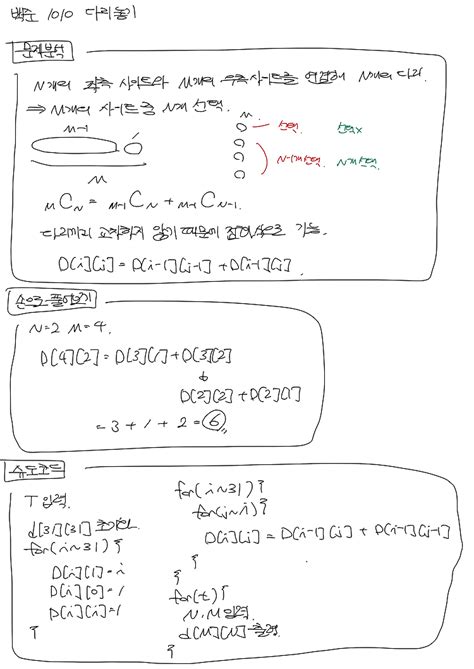 백준 1010 다리놓기
문제분석
N개의 좌측 사이트와 M개의 우측사이트를 연결해 N개의 다리.
⇒ M개의 사이트 중 N개 선택.
M-1
M
M.
선택. 선택x
N-1개선택. N개선택.
MCN = M-1CN + M-1CN-1.
다리끼리 교차하지 않기 때문에 점화식으로 가능.
D[i][j] = D[i-1][j-1] + D[i-1][j].
손으로 풀어보기
N=2 M=4.
D[4][2] = D[3][1] + D[3][2]
D[2][2] + D[2][1]
= 3 + 1 + 2 = 6
슈도코드
T 입력.
d[31][31] 초기화
for(i~31){
D[i][1] = i
D[i][0] = 1
D[i][i] = 1
}
for(i~31){
for(j~i){
D[i][j] = D[i-1][j] + D[i-1][j-1]
}
}
for(t){
N, M 입력.
d[M][N] 출력.
}